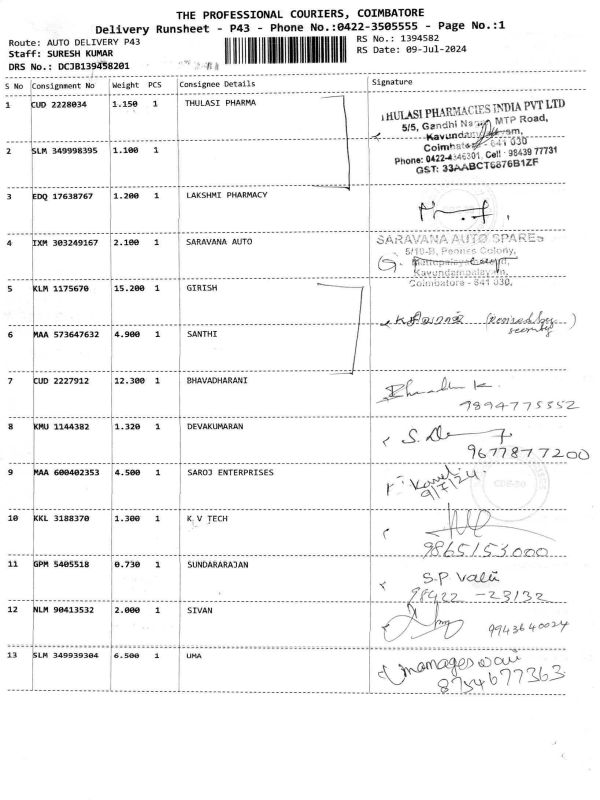 THE PROFESSIONAL COURIERS, COIMBATORE
Delivery Runsheet - P43 - Phone No.:0422-3505555 - Page No.:1
Route: AUTO DELIVERY P43
RS No.: 1394582
Staff: SURESH KUMAR
RS Date: 09-Jul-2024
DRS No.: DCJB139458201
S No Consignment No Weight PCS Consignee Details Signature
1 CUD 2228034 1.150 1 THULASI PHARMA
THULASI PHARMACIES INDIA PVT LTD
5/5, Gandhi MTP Road,
Coimbatore - 641 030
Phone: 0422-4346301, Cell: 98439 77731
GST: 33AABCT6876B1ZF
2 SLM 349998395 1.100 1
3 EDQ 17638767 1.200 1 LAKSHMI PHARMACY
4 IXM 303249167 2.100 1 SARAVANA AUTO
SARAVANA AUTO SPARES
5/10-B, Colony,
Kavundampalayam,
Coimbatore - 641 030.
5 KLM 1175670 15.200 1 GIRISH
(Received by
security)
6 MAA 573647632 4.900 1 SANTHI
7 CUD 2227912 12.300 1 BHAVADHARANI
9894775352
8 KMU 1144382 1.320 1 DEVAKUMARAN
9677877200
9 MAA 600402353 4.500 1 SAROJ ENTERPRISES
9/7/24
10 KKL 3188370 1.300 1 K V TECH
9865153000
11 GPM 5405518 0.730 1 SUNDARARAJAN
S.P Valli
98422 - 23132
12 NLM 90413532 2.000 1 SIVAN
9943640024
13 SLM 349939304 6.500 1 UMA
Umamageswari
8754677363